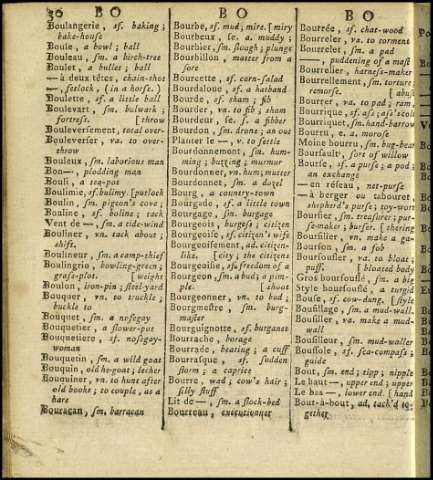 36 B O
B O
B O
Boulangerie, sf. baking;
bake-house
Boule, a bowl; ball
Bouleau, sm. a birch-tree
Boulet, a bullet; ball
— à deux têtes, chain-shot
—, fetlock, (in a horse.)
Boulette, sf. a little ball
Boulevart, sm. bulwark;
fortress. [throw
Bouleversement, total over-
Bouleverser, va. to over-
throw
Bouleux, sm. laborious man
Bon—, plodding man
Bouli, a tea-pot
Boulimie, sf. bulimy. [potlock
Boulin, sm. pigeon's cove;
Bouline, sf. boline; tack
Vent de —, sm. a side-wind
Bouliner, vn. tack about;
shift.
Boulineur, sm. a camp-thief
Boulingrin, bowling-green;
grass-plot. [weight
Boulon, iron-pin; steel-yard
Bouquer, vn. to truckle;
buckle to
Bouquet, sm. a nosegay
Bouquetier, a flower-pot
Bouquetiere, sf. nosegay-
woman
Bouquetin, sm. a wild goat
Bouquin, old he-goat; lecher
Bouquiner, vn. to hunt after
old books; to couple, as a
hare
Bouracan, sm. barracan
Bourbe, sf. mud; mire. [miry
Bourbeux, se. a. muddy;
Bourbier, sm. slough; plunge
Bourbillon, matter from a
sore
Bourcette, sf. corn-salad
Bourdalouе, sf. a hatband
Bourde, sf. sham; fib
Bourder, vn. to fib; sham
Bourdeur, se, sf. a fibber
Bourdon, sm. drone; an out
Planter le —, v. to settle
Bourdonnement, sm. hum-
ming; buzzing; murmur
Bourdonner, vn. hum; mutter
Bourdonnet, sm. a dozel
Bourg, a country-town
Bourgade, sf. a little town
Bourgage, sm. burgage
Bourgeois, burgess; citizen
Bourgeoise, sf. citizen's wife
Bourgeoisement, ad. citizen-
like. [city; the citizens
Bourgeoisie, sf. freedom of a
Bourgeon, sm. a bud; a pim-
ple. [shoot
Bourgeonner, vn. to bud;
Bourgmestre, sm. burg-
master
Bourguignotte, sf. burganet
Bourrache, borage
Bourrade, beating; a cuff
Bourrasque, sf. sudden
storm; a caprice
Bourre, wad; cow's hair;
silly stuff
Lit de —, sm. a flock-bed
Bourreau, executioner
Bourrée, sf. chat-wood
Bourreler, va. to torment
Bourrelet, sm. a pad
—, puddening of a mast
Bourrelier, harness-maker
Bourrellement, sm. torture;
remorse. [abuse
Bourrer, va. to pad; ram,
Bourrique, sf. ass;
Bourriquet, sm. hand-barrow
Bourru, e. a. morose
Moine bourru, sm. bug-bear
Boursault, sort of willow
Bourse, sf. a purse; a pod;
an exchange
— en réseau, net-purse
— à berger ou tabouret,
shepherd's purse; toy-wort
Boursier, sm. treasurer; pur-
se-maker; burser. [thering
Boursiller, vn. make a ga-
Bourson, sm. a fob
Boursoufler, va. to bloat;
puff. [bloated body
Gros boursouflé, sm. a big
Style boursouflé, a turgid
Bouse, sf. cow-dung. [style
Bousillage, sm. a mud-wall.
Bousiller, va. make a mud-
wall
Bousilleur, sm. mud-waller
Boussole, sf. sea-compass;
guide
Bout, sm. end; tip; nipple
Le haut —, upper end; upper
Le bas —, lower end. [hand
Bout-à-bout, ad. tack'd to-
gether